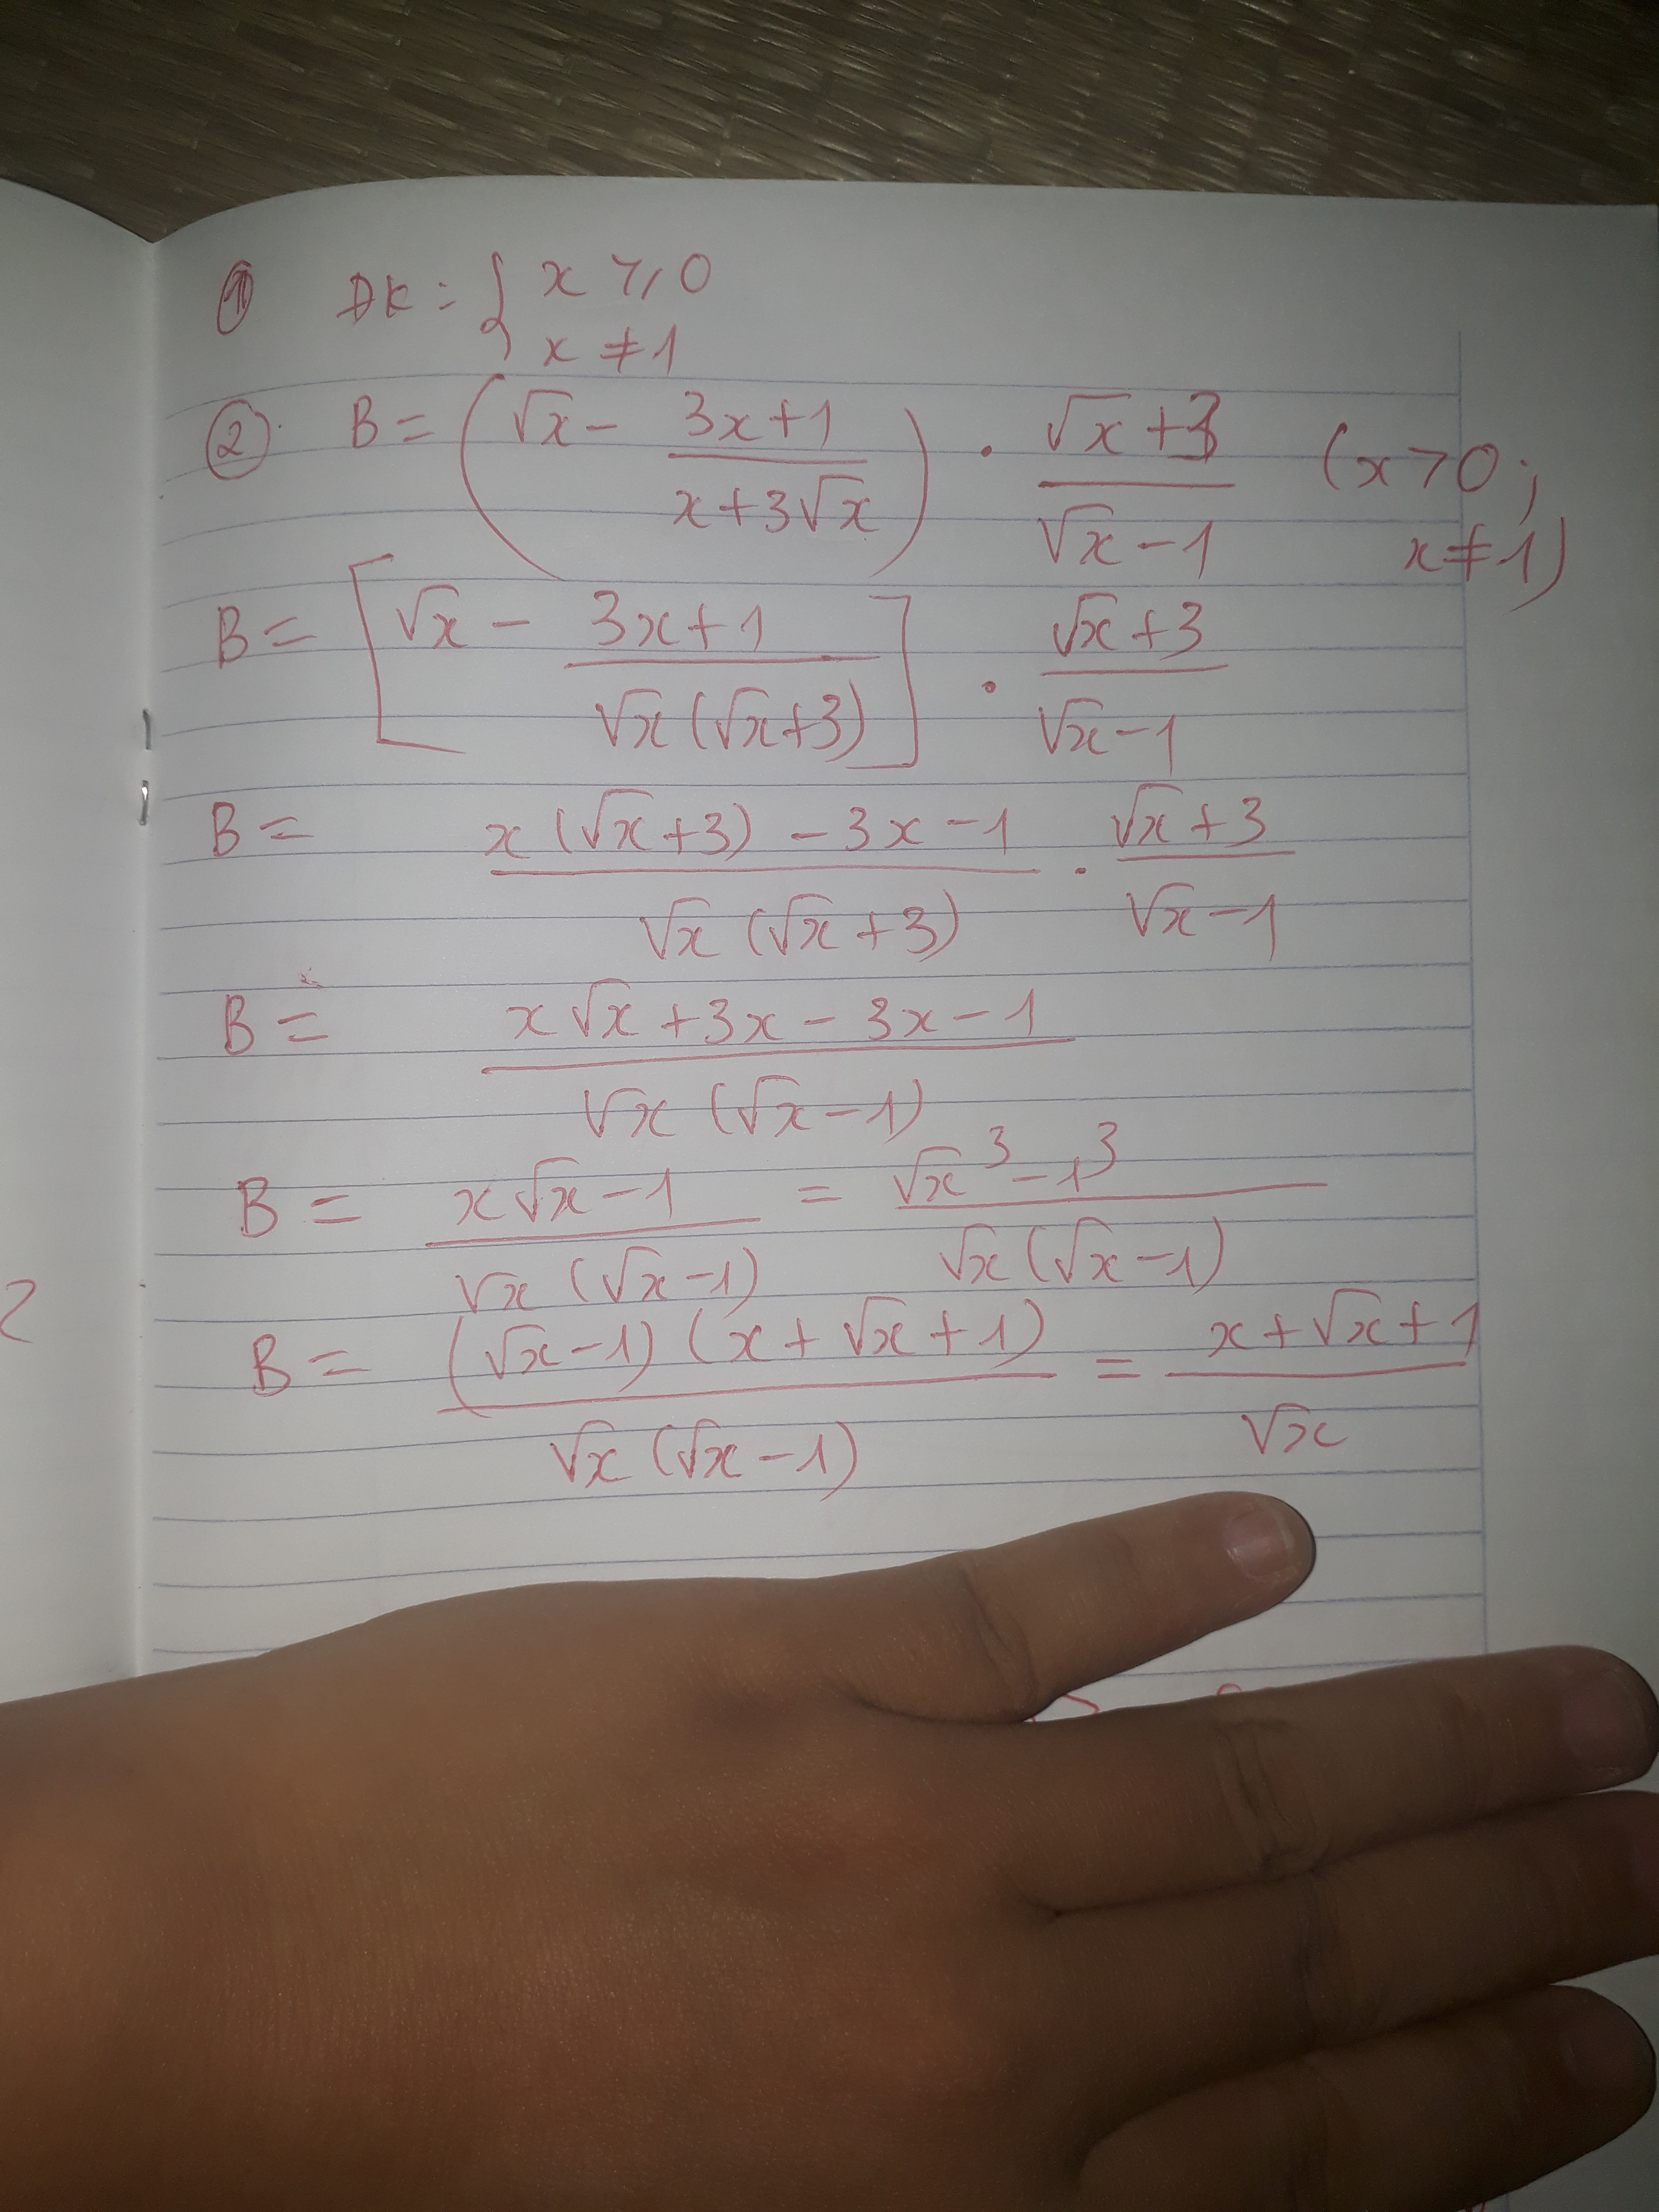 ① ĐK: { x ⩾ 0
x ≠ 1
②. B = ( √x - (3x+1)/(x+3√x) ) . (√x+3)/(√x-1) (x>0;
x≠1)
B = [ √x - (3x+1)/(√x(√x+3)) ] . (√x+3)/(√x-1)
B = (x(√x+3) - 3x - 1)/(√x(√x+3)) . (√x+3)/(√x-1)
B = (x√x + 3x - 3x - 1)/(√x(√x-1))
B = (x√x - 1)/(√x(√x-1)) = (√x³ - 1³)/(√x(√x-1))
B = ((√x-1)(x+√x+1))/(√x(√x-1)) = (x+√x+1)/√x